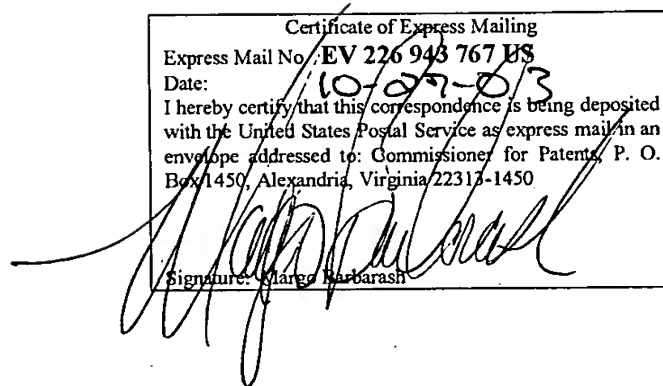 Certificate of Express Mailing
Express Mail No.: EV 226 943 767 US
Date: 10-27-03
I hereby certify that this correspondence is being deposited
with the United States Postal Service as express mail in an
envelope addressed to: Commissioner for Patents, P. O.
Box 1450, Alexandria, Virginia 22313-1450
Margo Barbarash
Signature: Margo Barbarash